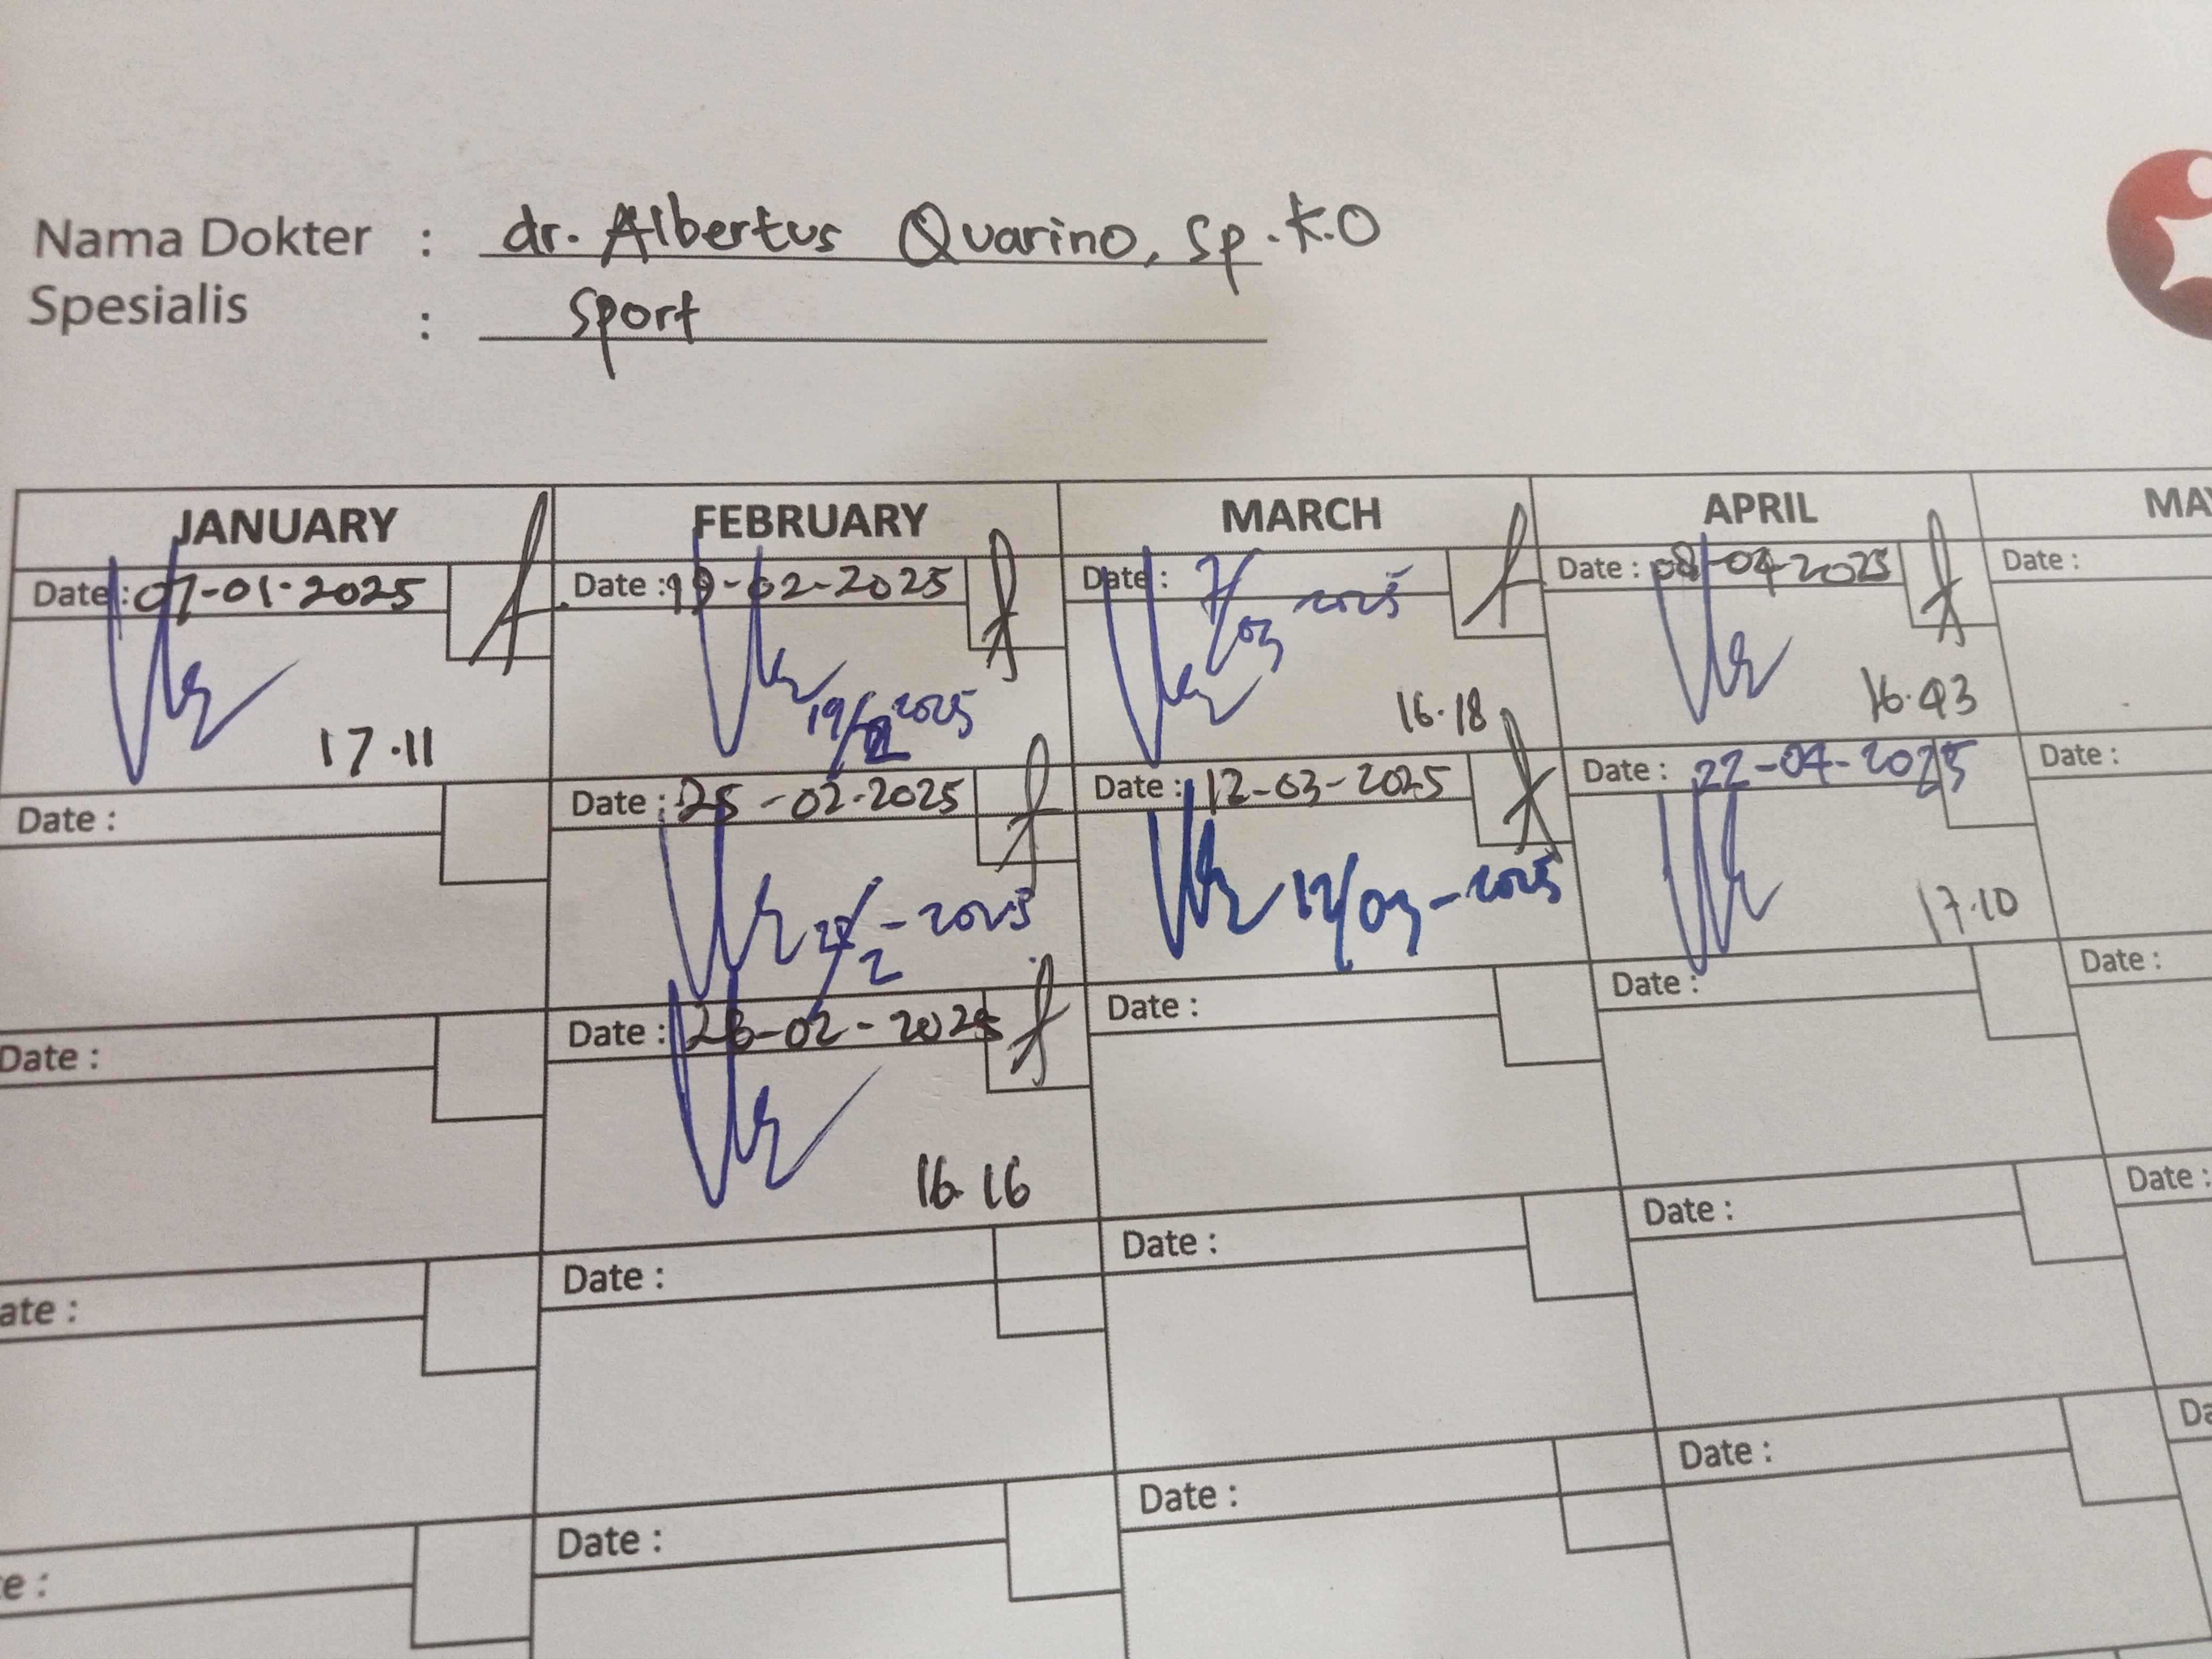 Nama Dokter : dr. Albertus Quarino, Sp.K.O
Spesialis : Sport
JANUARY FEBRUARY MARCH APRIL
Date : 07-01-2025 Date : 19-02-2025 Date : 7/03 2025 Date : 08-04-2025 Date :
17.11 19/02 2025 16.18 16.43
Date : Date : 25-02-2025 Date : 12-03-2025 Date : 22-04-2025 Date :
2 - 2025 12/03-2025 17.10
Date : Date : 26-02-2025 Date : Date : Date :
16.16
Date : Date : Date : Date :
Date : Date : Date :